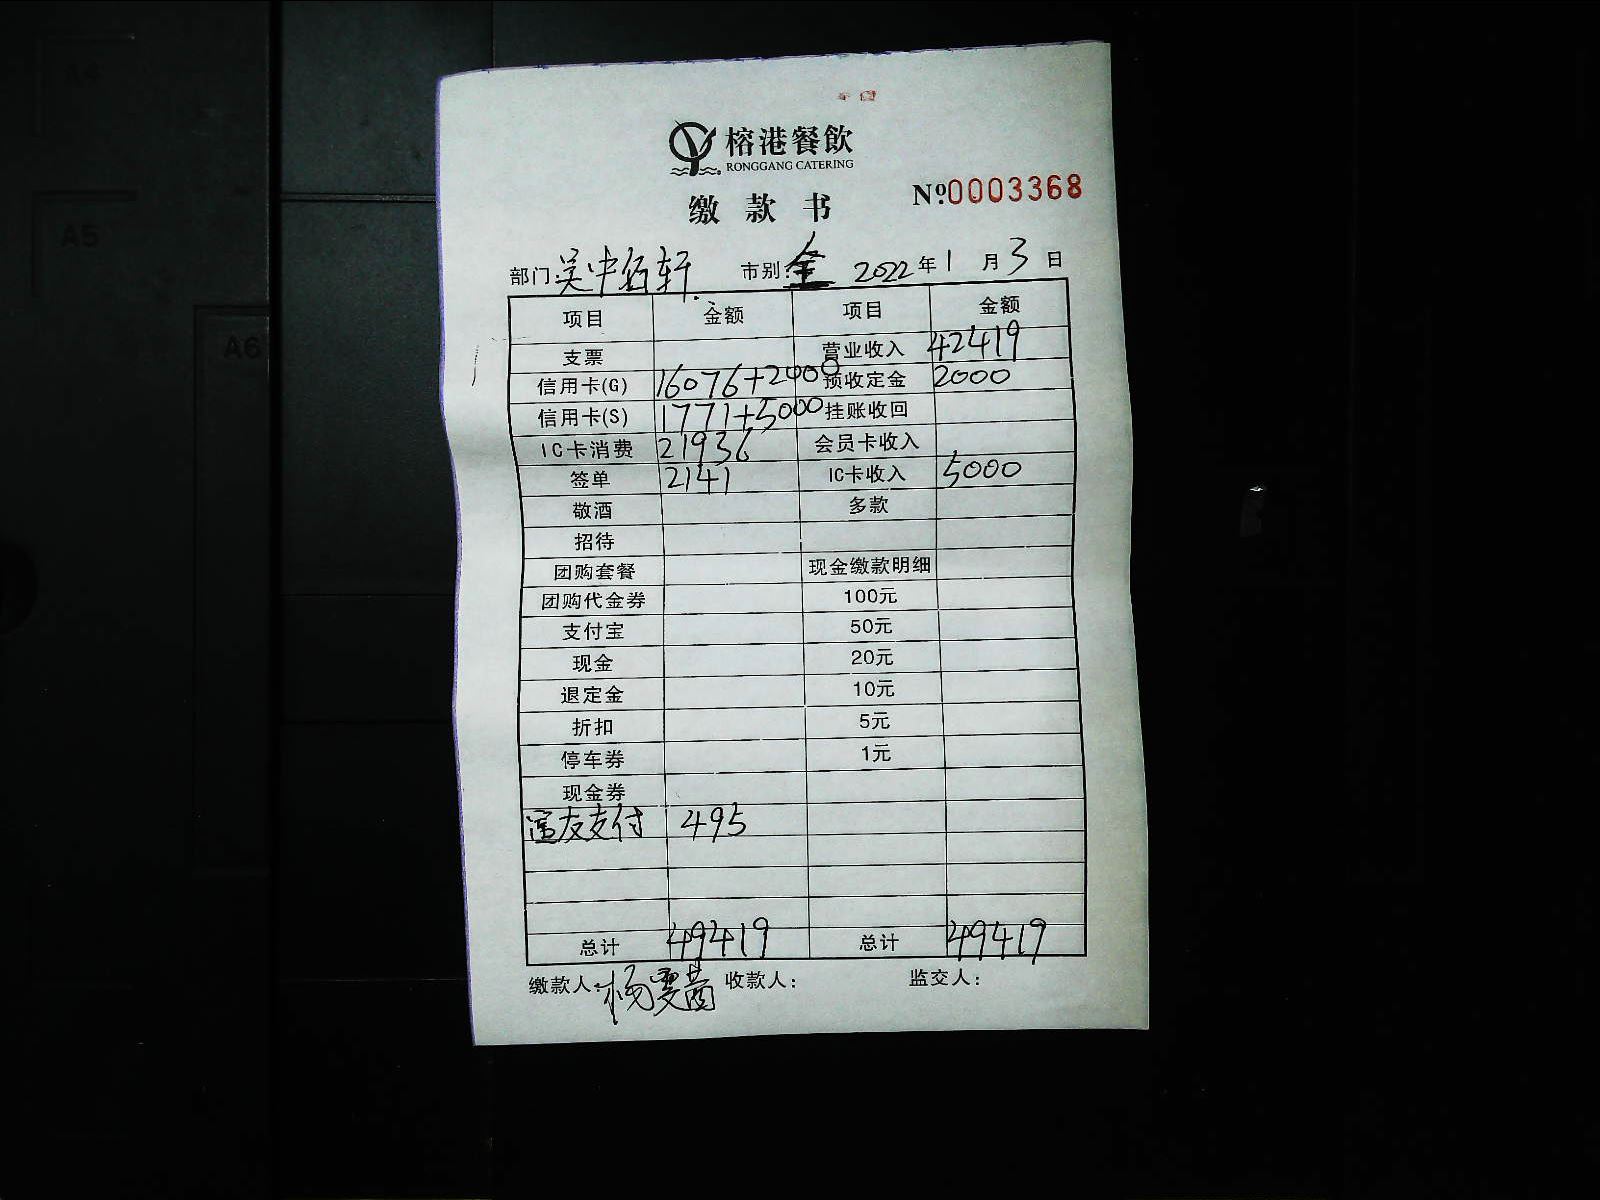 榕港餐飲
RONGGANG CATERING
缴款书
Nº:0003368
部门:吴中 轩 市别:全 2022年1月3日
项目 金额 项目 金额
支票 营业收入 42419
信用卡(G) 16076+2000 预收定金 2000
信用卡(S) 1771+5000 挂账收回
IC卡消费 21936 会员卡收入
签单 2141 IC卡收入 5000
敬酒 多款
招待
团购套餐 现金缴款明细
团购代金券 100元
支付宝 50元
现金 20元
退定金 10元
折扣 5元
停车券 1元
现金券
友支付 495
总计 49419 总计 49419
缴款人:杨雯茵 收款人: 监交人:
A4
A5
A6